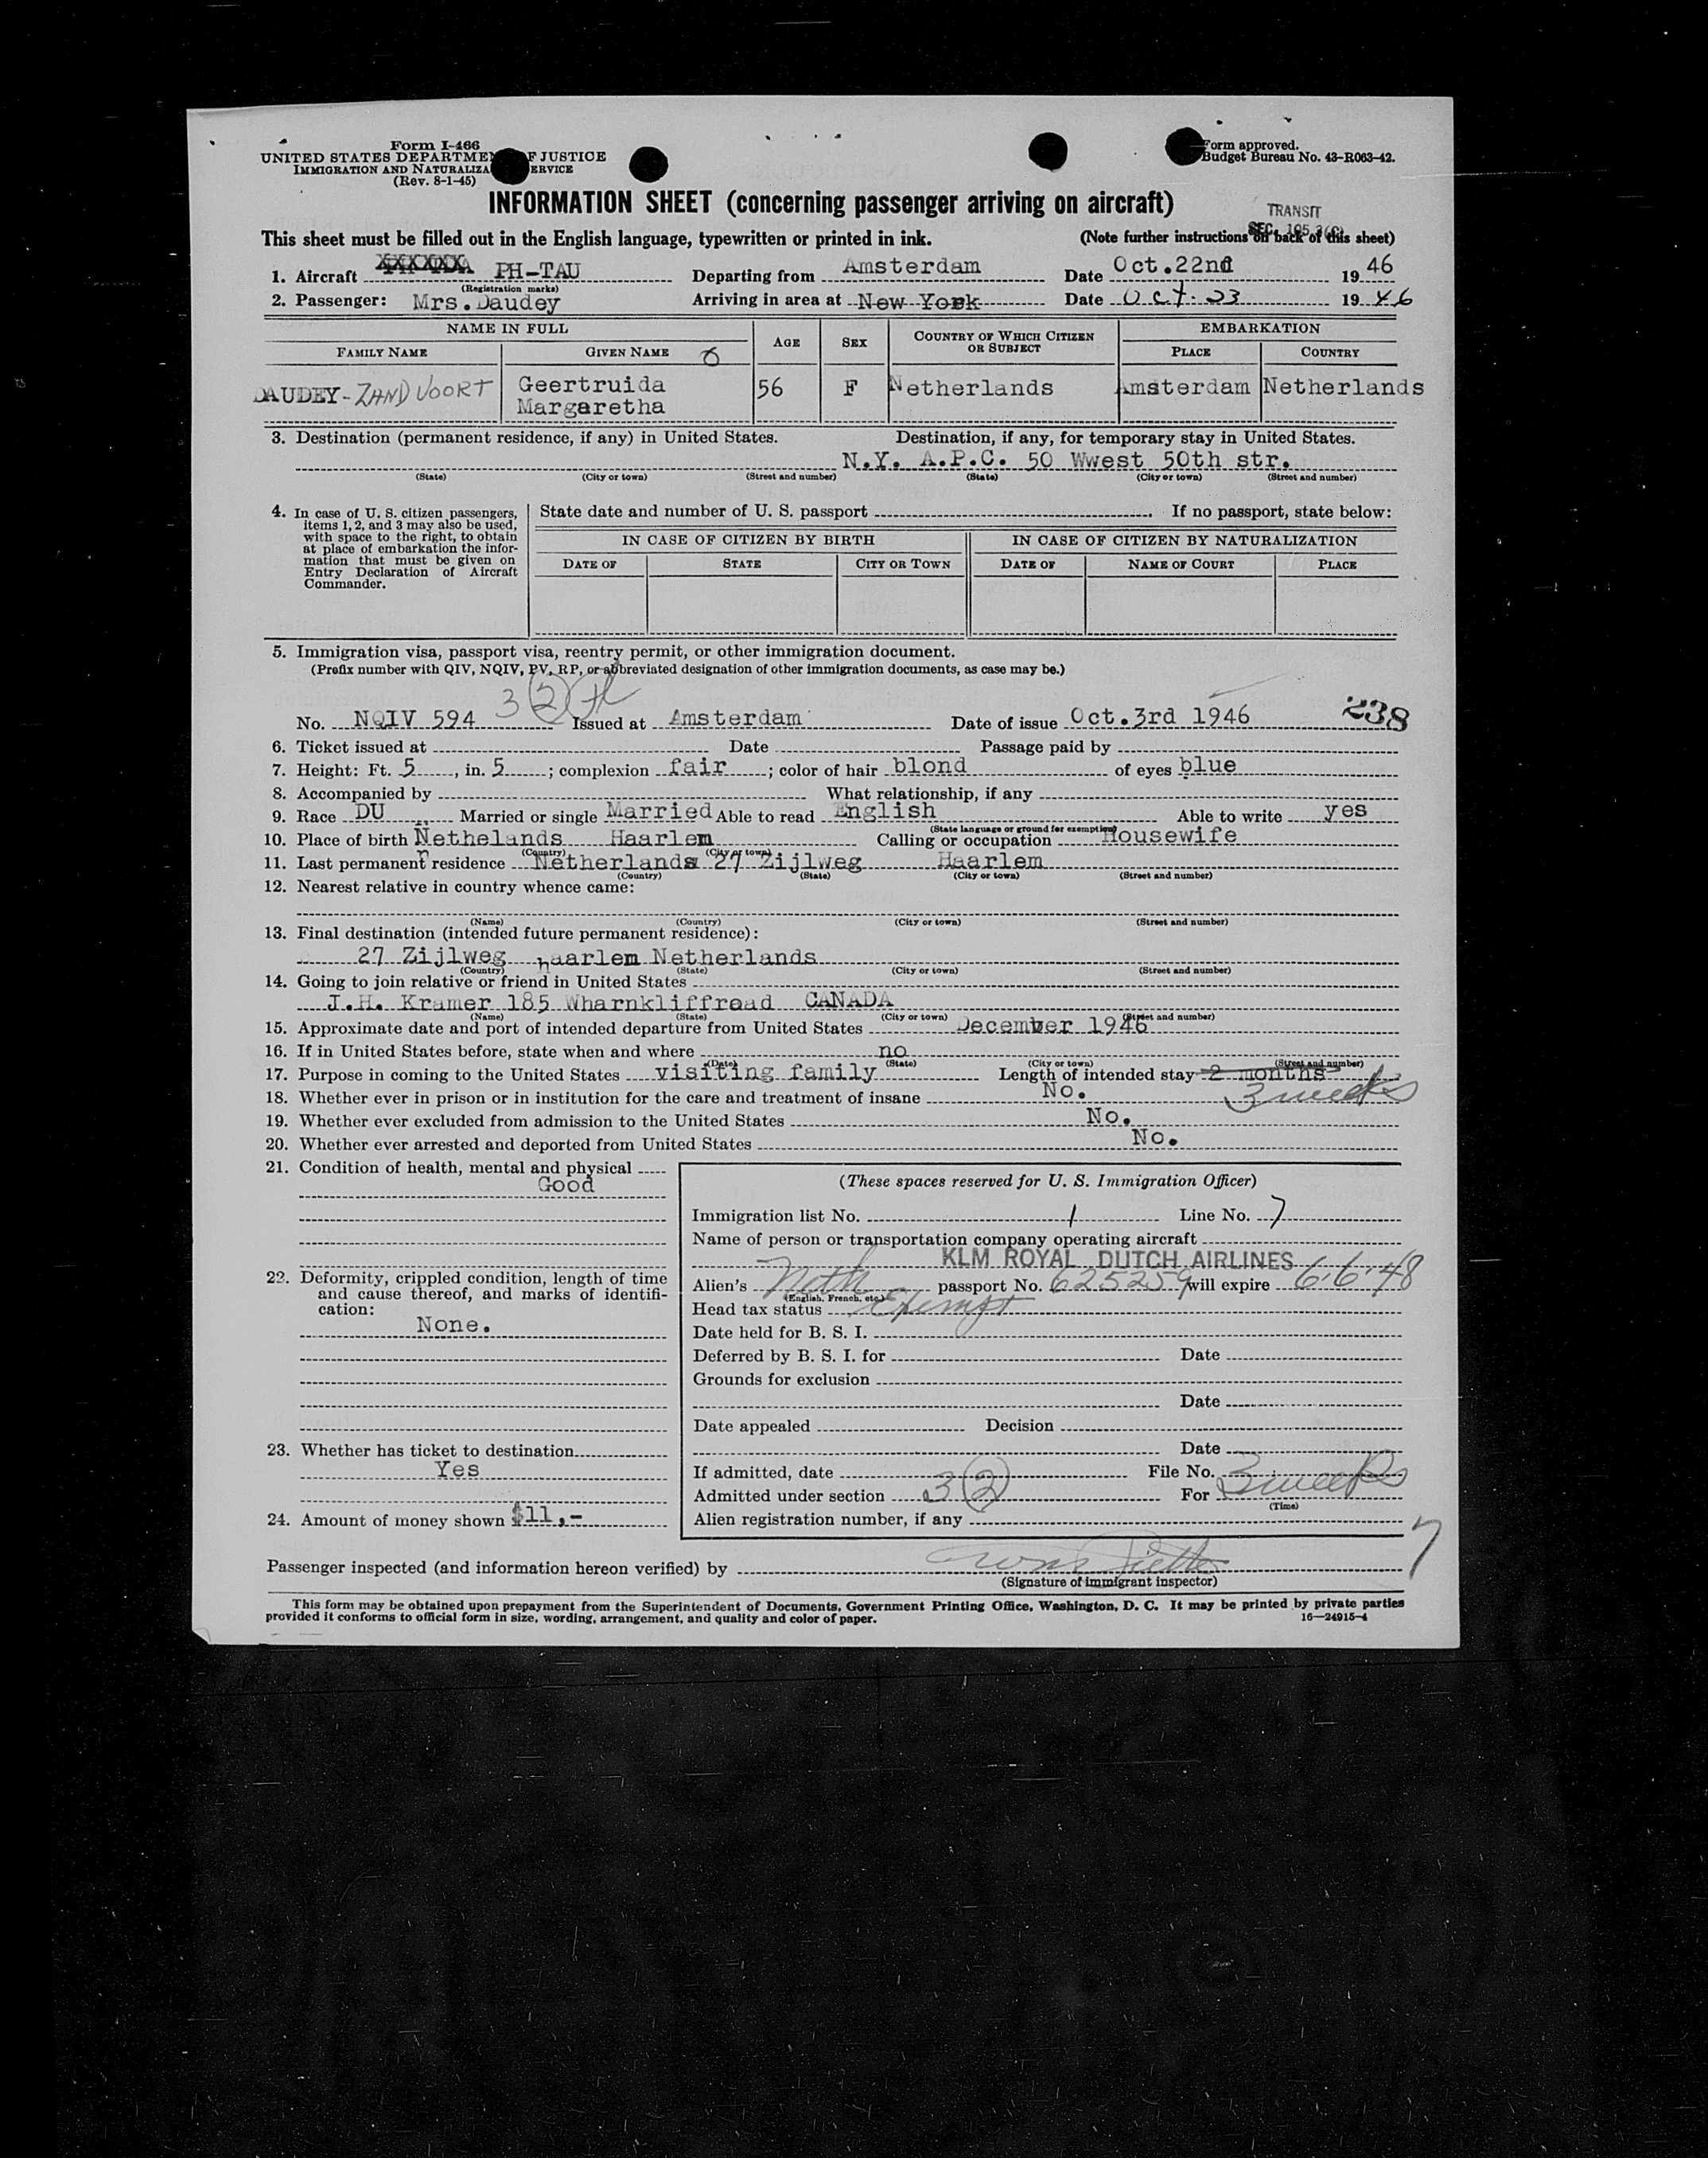 Form I-466
UNITED STATES DEPARTME F JUSTICE
IMMIGRATION AND NATURALIZA ERVICE
(Rev. 8-1-45)
orm approved.
Budget Bureau No. 43-R063-42.
INFORMATION SHEET (concerning passenger arriving on aircraft)
TRANSIT
This sheet must be filled out in the English language, typewritten or printed in ink. (Note further instructions on back of this sheet)
1. Aircraft PH-TAU Departing from Amsterdam Date Oct.22nd 1946
(Registration marks)
2. Passenger: Mrs.Daudey Arriving in area at New York Date Oct. 23 1946
NAME IN FULL AGE SEX COUNTRY OF WHICH CITIZEN OR SUBJECT EMBARKATION
FAMILY NAME GIVEN NAME PLACE COUNTRY
DAUDEY-ZANDVOORT Geertruida Margaretha 56 F Netherlands Amsterdam Netherlands
3. Destination (permanent residence, if any) in United States. Destination, if any, for temporary stay in United States.
N.Y. A.P.C. 50 Wwest 50th str.
(State) (City or town) (Street and number) (State) (City or town) (Street and number)
4. In case of U. S. citizen passengers, items 1, 2, and 3 may also be used, with space to the right, to obtain at place of embarkation the information that must be given on Entry Declaration of Aircraft Commander.
State date and number of U. S. passport If no passport, state below:
IN CASE OF CITIZEN BY BIRTH IN CASE OF CITIZEN BY NATURALIZATION
DATE OF STATE CITY OR TOWN DATE OF NAME OF COURT PLACE
5. Immigration visa, passport visa, reentry permit, or other immigration document.
(Prefix number with QIV, NQIV, PV, RP, or abbreviated designation of other immigration documents, as case may be.)
3 (2)
238
No. NQIV 594 Issued at Amsterdam Date of issue Oct.3rd 1946
6. Ticket issued at Date Passage paid by
7. Height: Ft. 5, in. 5; complexion fair; color of hair blond of eyes blue
8. Accompanied by What relationship, if any
9. Race DU Married or single Married Able to read English Able to write yes
(State language or ground for exemption)
10. Place of birth Nethelands Haarlem Calling or occupation Housewife
(Country) (City or town)
11. Last permanent residence Netherlands 27 Zijlweg Haarlem
(Country) (State) (City or town) (Street and number)
12. Nearest relative in country whence came:
(Name) (Country) (City or town) (Street and number)
13. Final destination (intended future permanent residence):
27 Zijlweg haarlem Netherlands
(Country) (State) (City or town) (Street and number)
14. Going to join relative or friend in United States
J.H. Kramer 185 Wharnkliffroad CANADA
(Name) (State) (City or town) (Street and number)
15. Approximate date and port of intended departure from United States December 1946
16. If in United States before, state when and where no
(Date) (State) (City or town) (Street and number)
17. Purpose in coming to the United States visiting family Length of intended stay 2 months
3 weeks
18. Whether ever in prison or in institution for the care and treatment of insane No.
19. Whether ever excluded from admission to the United States No.
20. Whether ever arrested and deported from United States No.
21. Condition of health, mental and physical
Good
22. Deformity, crippled condition, length of time and cause thereof, and marks of identification:
None.
23. Whether has ticket to destination
Yes
24. Amount of money shown $11,-
(These spaces reserved for U. S. Immigration Officer)
Immigration list No. 1 Line No. 7
Name of person or transportation company operating aircraft
KLM ROYAL DUTCH AIRLINES
Alien's Neth passport No. 625259 will expire 6.6.48
(English, French, etc.)
Head tax status Exempt
Date held for B. S. I.
Deferred by B. S. I. for Date
Grounds for exclusion
Date
Date appealed Decision
Date
If admitted, date File No.
Admitted under section 3(2) For 3 weeks
(Time)
Alien registration number, if any
7
Passenger inspected (and information hereon verified) by
(Signature of immigrant inspector)
This form may be obtained upon prepayment from the Superintendent of Documents, Government Printing Office, Washington, D. C. It may be printed by private parties
provided it conforms to official form in size, wording, arrangement, and quality and color of paper. 16—24915-4